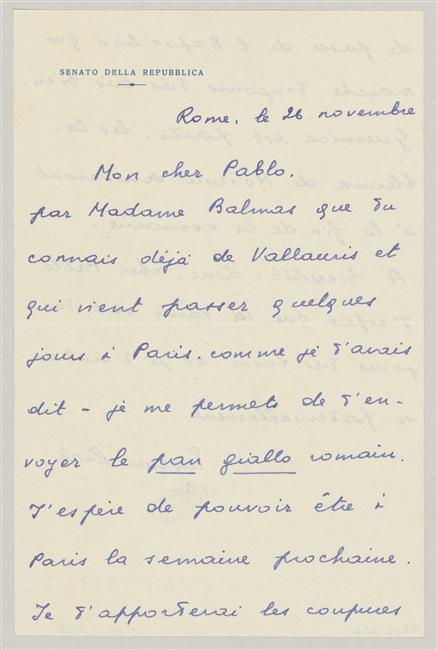 SENATO DELLA REPUBBLICA
Rome, le 26 novembre
Mon cher Pablo.
par Madame Balmas que tu
connais déjà de Vallauris et
qui vient passer quelques
jours à Paris. comme je t'avais
dit - je me permets de t'en-
voyer le pan giallo romain.
J'espère de pouvoir être à
Paris la semaine prochaine.
Je t'apporterai les coupures